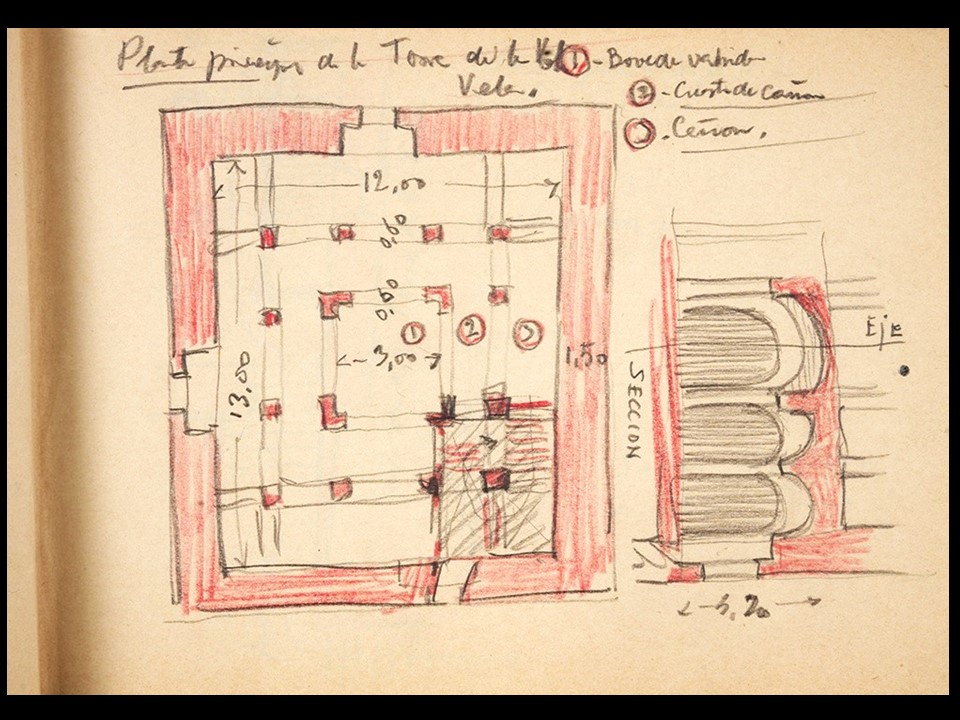 Planta principal de la Torre de la
Vela.
1 - Boveda vahida
2 - Cuarto de cañon
3. Cañon.
12,00
0,60
0,60
1 2 3
3,00
1,50
13,00
Eje
SECCION